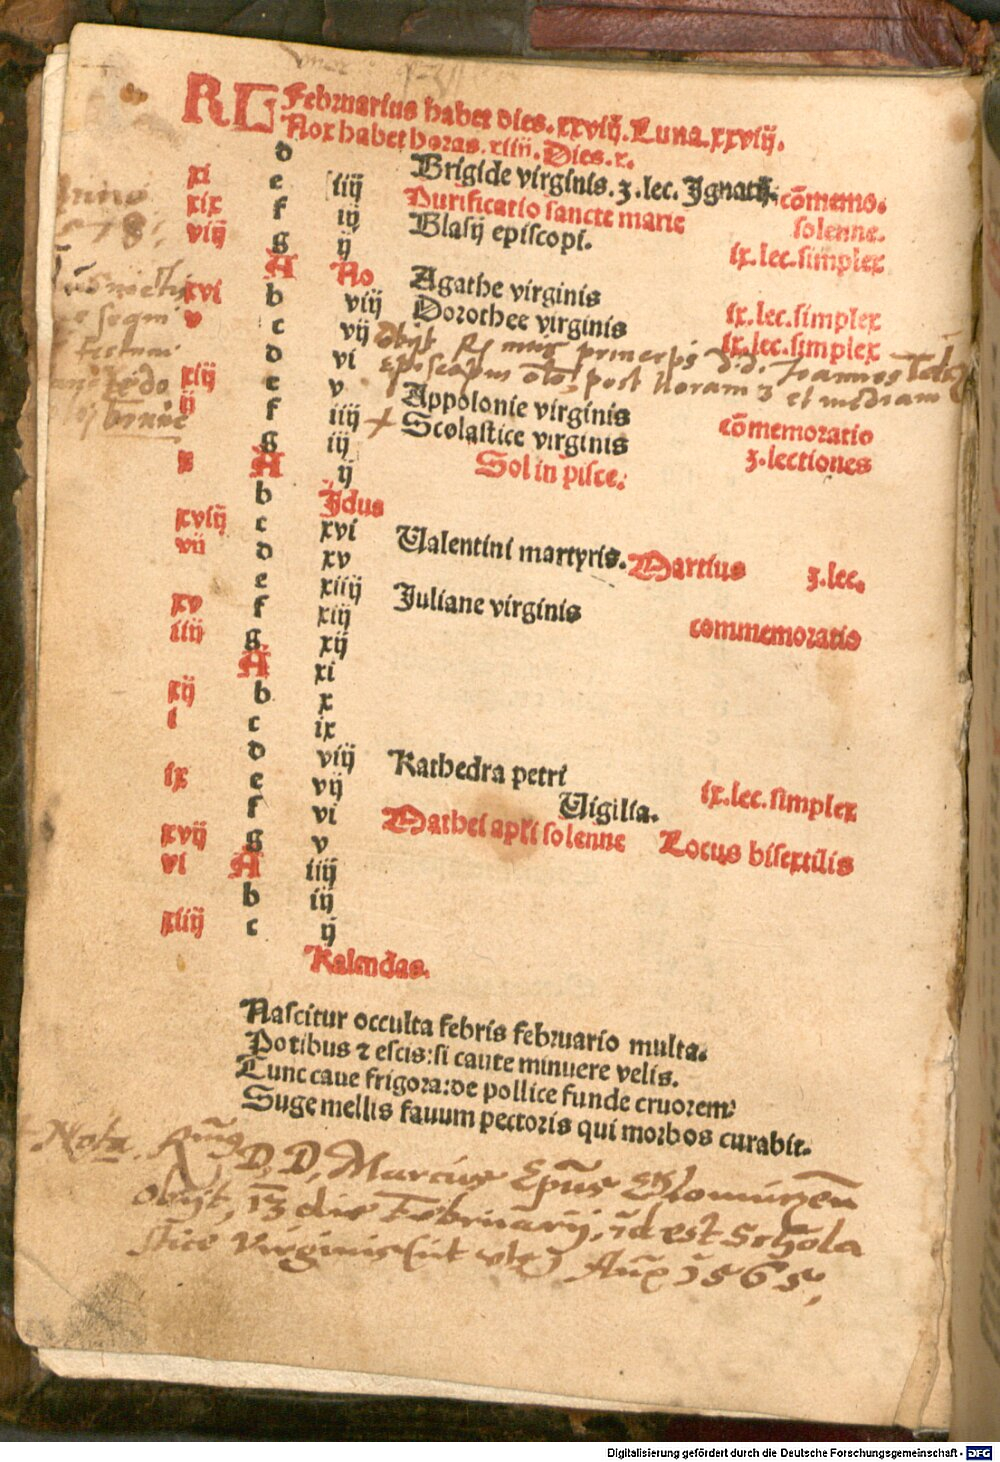 KL Februarius habet dies. xxviij. Luna. xxviij.
Nox habet horas. xiiij. Dies. x.
d
xi e iiij Brigide virginis. 3. lec. Ignatij. cōmemo.
xix f iij Purificatio sancte marie solenne.
viij g ij Blasij episcopi. ix. lec. simplex
A No
xvi b viij Agathe virginis ix. lec. simplex
v c vij Dorothee virginis ix. lec. simplex
d vi
Obijt princeps d. d. Joannes
Episcopus post horam 3 et mediam
xiij e v Appolonie virginis cōmemoratio
ij f iiij Scolastice virginis 3. lectiones
g iij
x A ij Sol in pisce.
b Idus
xviij c xvi Valentini martyris. Martius 3. lec.
vii d xv
e xiiij Juliane virginis commemoratio
xv f xiij
iiij g xij
A xi
xij b x
i c ix
d viij Kathedra petri ix. lec. simplex
ix e vij Vigilia.
f vi Mathei apli solenne Locus bisextilis
xvij g v
vi A iiij
b iij
xiiij c ij
Kalendas.
Nascitur occulta febris februario multa.
Potibus ⁊ escis: si caute minuere velis.
Tunc caue frigora: de pollice funde cruorem:
Suge mellis fauum pectoris qui morbos curabit.
Nota. D. D. Marcus Epūs Olomuzen
obijt, 13 die Februarij, id est Schola
stice Virginis 1565.
Anno
Digitalisierung gefördert durch die Deutsche Forschungsgemeinschaft - DFG